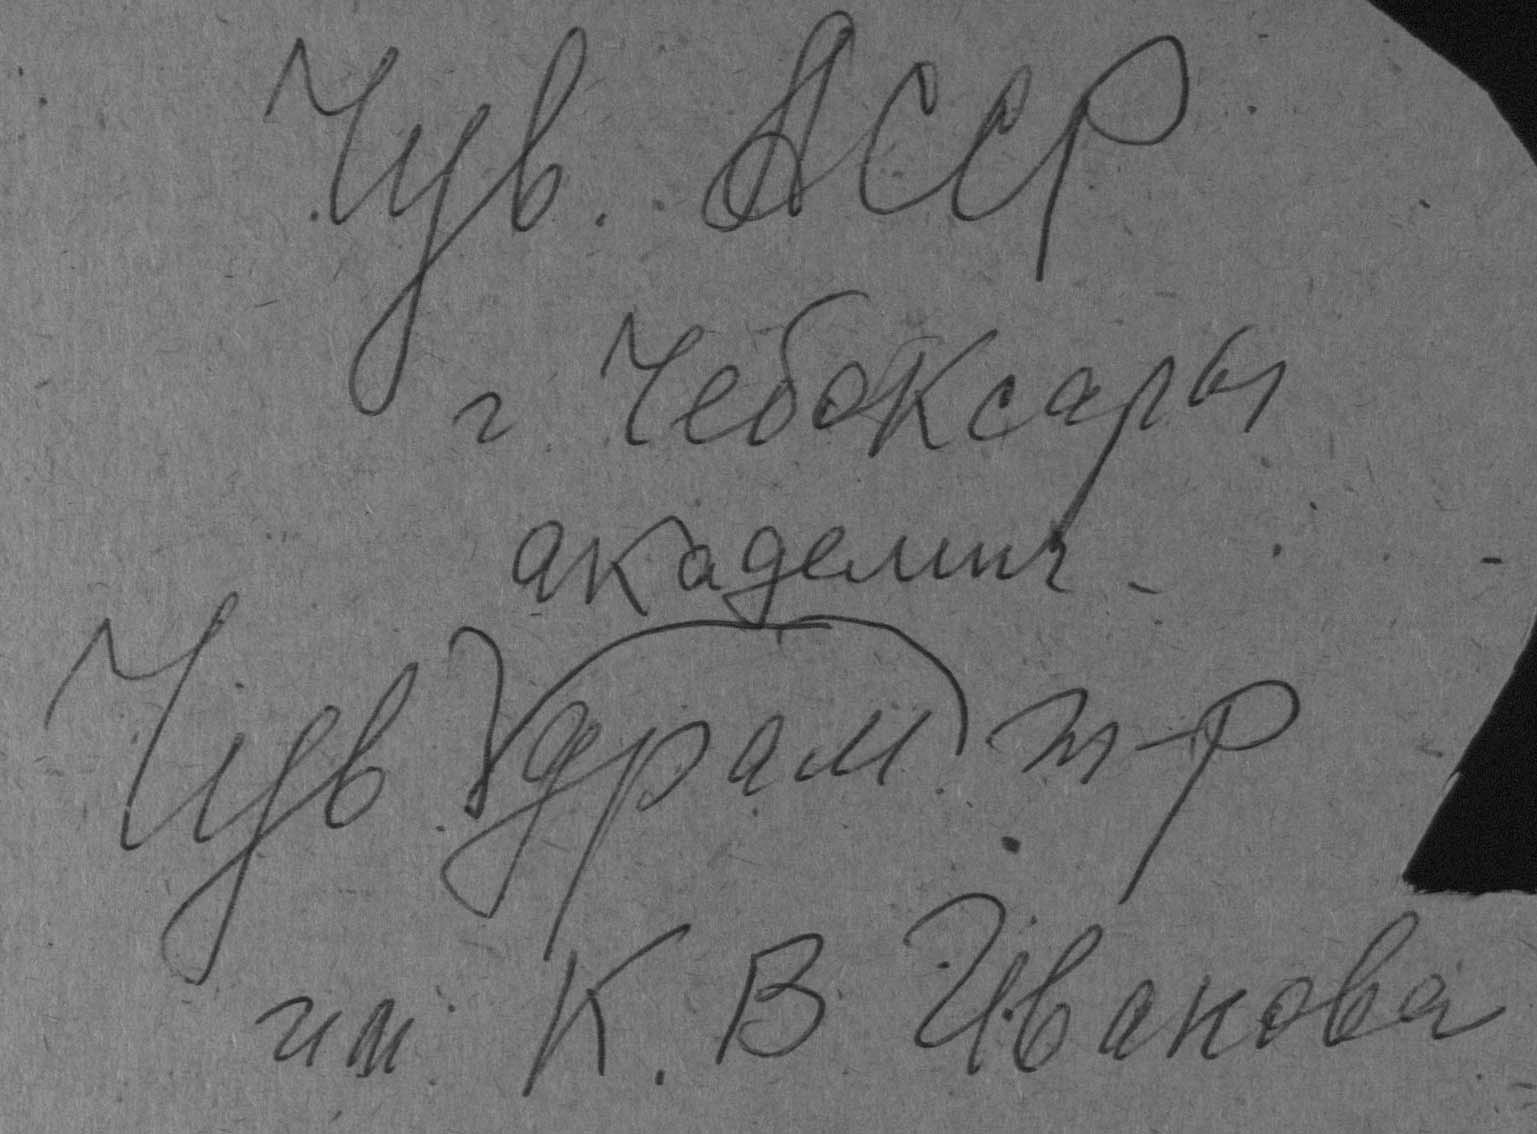 Чув. АССР
г. Чебоксары
академич.
Чув. драм. т-р
им. К. В. Иванова